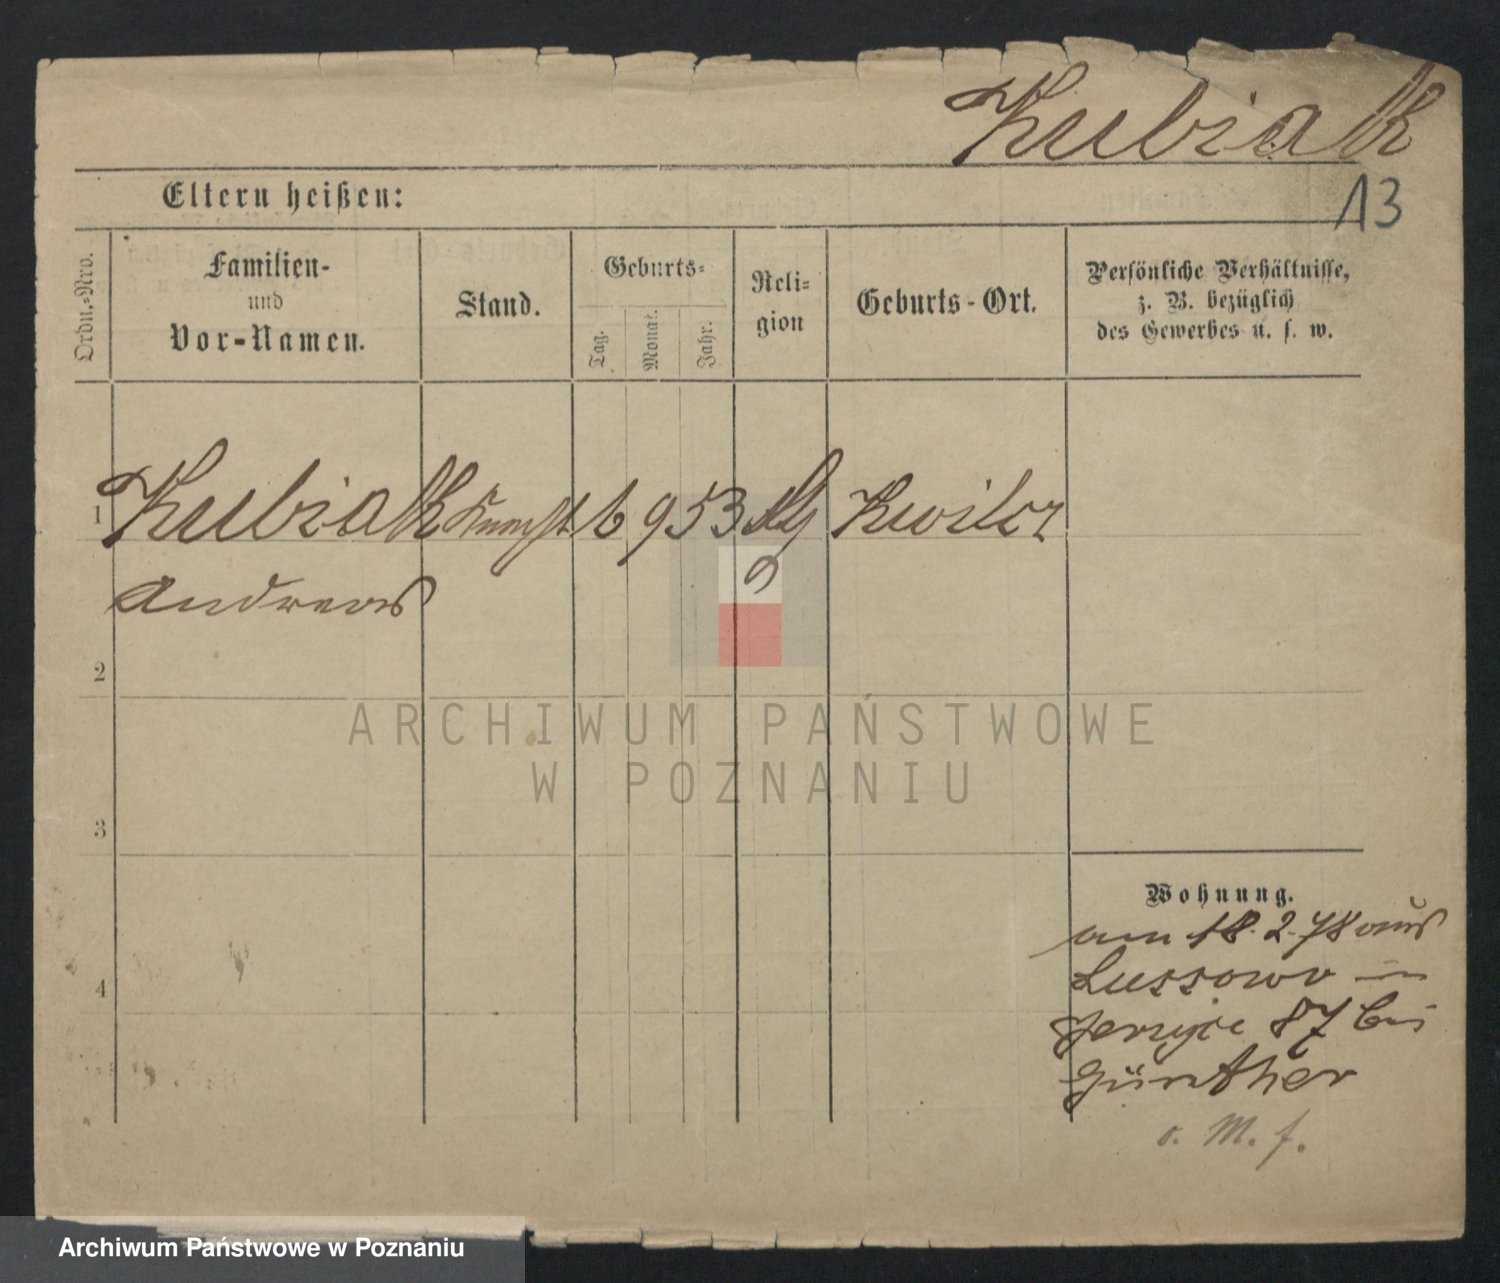 Kubiak
13
Eltern heißen:
Ordn.-Nro.
Familien-
und
Vor-Namen.
Stand.
Geburts-
Tag.
Monat.
Jahr.
Reli-
gion
Geburts-Ort.
Persönliche Verhältnisse,
z. B. bezüglich
des Gewerbes u. s. w.
1 Kubiak Knecht 6 9 53 Kwilcz
Andreas
2
ARCHIWUM PAŃSTWOWE
W POZNANIU
3
Wohnung.
am 18. 2. 78 aus
Lussowo in
4
Jerzyce 87 bei
Günther
o. M. f.
Archiwum Państwowe w Poznaniu